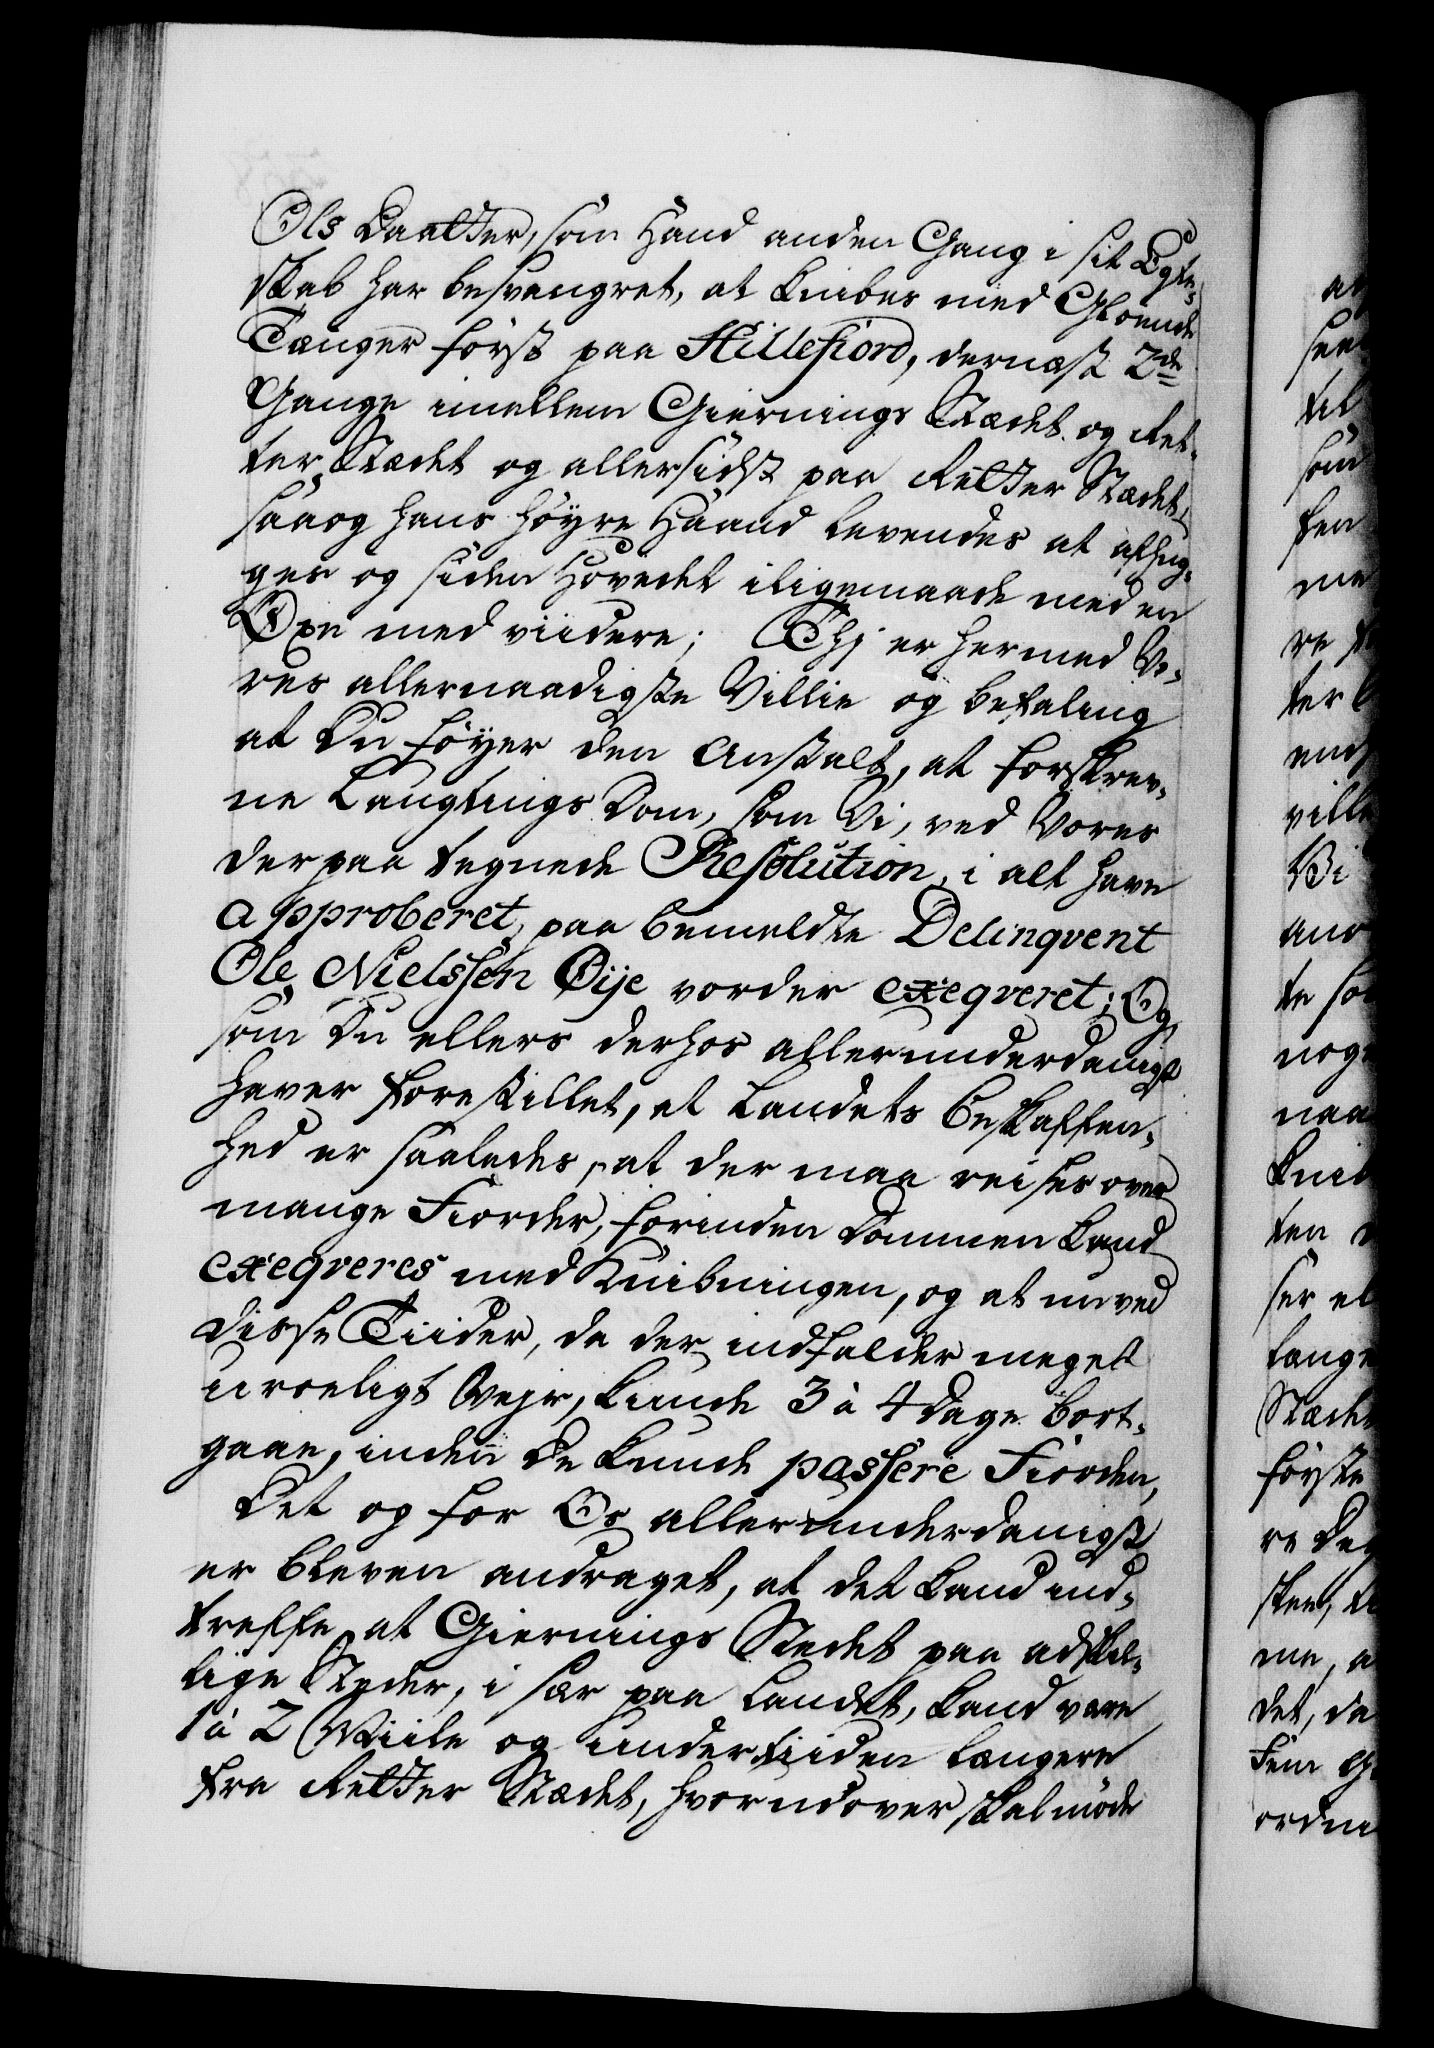 Ols Daatter, som Hand anden Gang i sit Egte-
skab har besvangret, at knibes med Gloende
Tænger först paa Hillefiord, dernæst 2de
Gange imellem Giernings Stædet og Ret-
ter Stædet og allersidst paa Retter Stædet,
saaog hans höyre Haand levendes at afhug-
ges og siden Hovedet iligemaade med en
Öxe med viidere; Thj er hermed Vo-
res allernaadigste Villie og befaling
at Du föyer den Anstalt, at forskrev-
ne Laugtings Dom, som Vi, ved Vores
derpaa tegnede Resolution, i alt have
approberet, paa bemeldte Delinqvent
Ole Nielssen Öije vorder exeqveret; Og
som Du ellers derhos allerunderdanigst
haver forestillet, at Landets beskaffen-
hed er saaledes, at der maa reises over
mange Fiorder, forinden Dommen kand
exeqveres med Knibningen, og at nu ved
disse Tiider, da der indfalder meget
uroeligt Vejr, kunde 3 à 4 Dage bort-
gaae, inden De kunde passere Fiorden,
Det og for Os allerunderdanigst
er bleven andraget, at det kand ind-
treffe at Giernings Stedet paa adskil-
lige Steder, i sær paa Landet, kand være
1 à 2 Miile og undertiiden længere
fra Retter Stædet, hvorudover skal möde